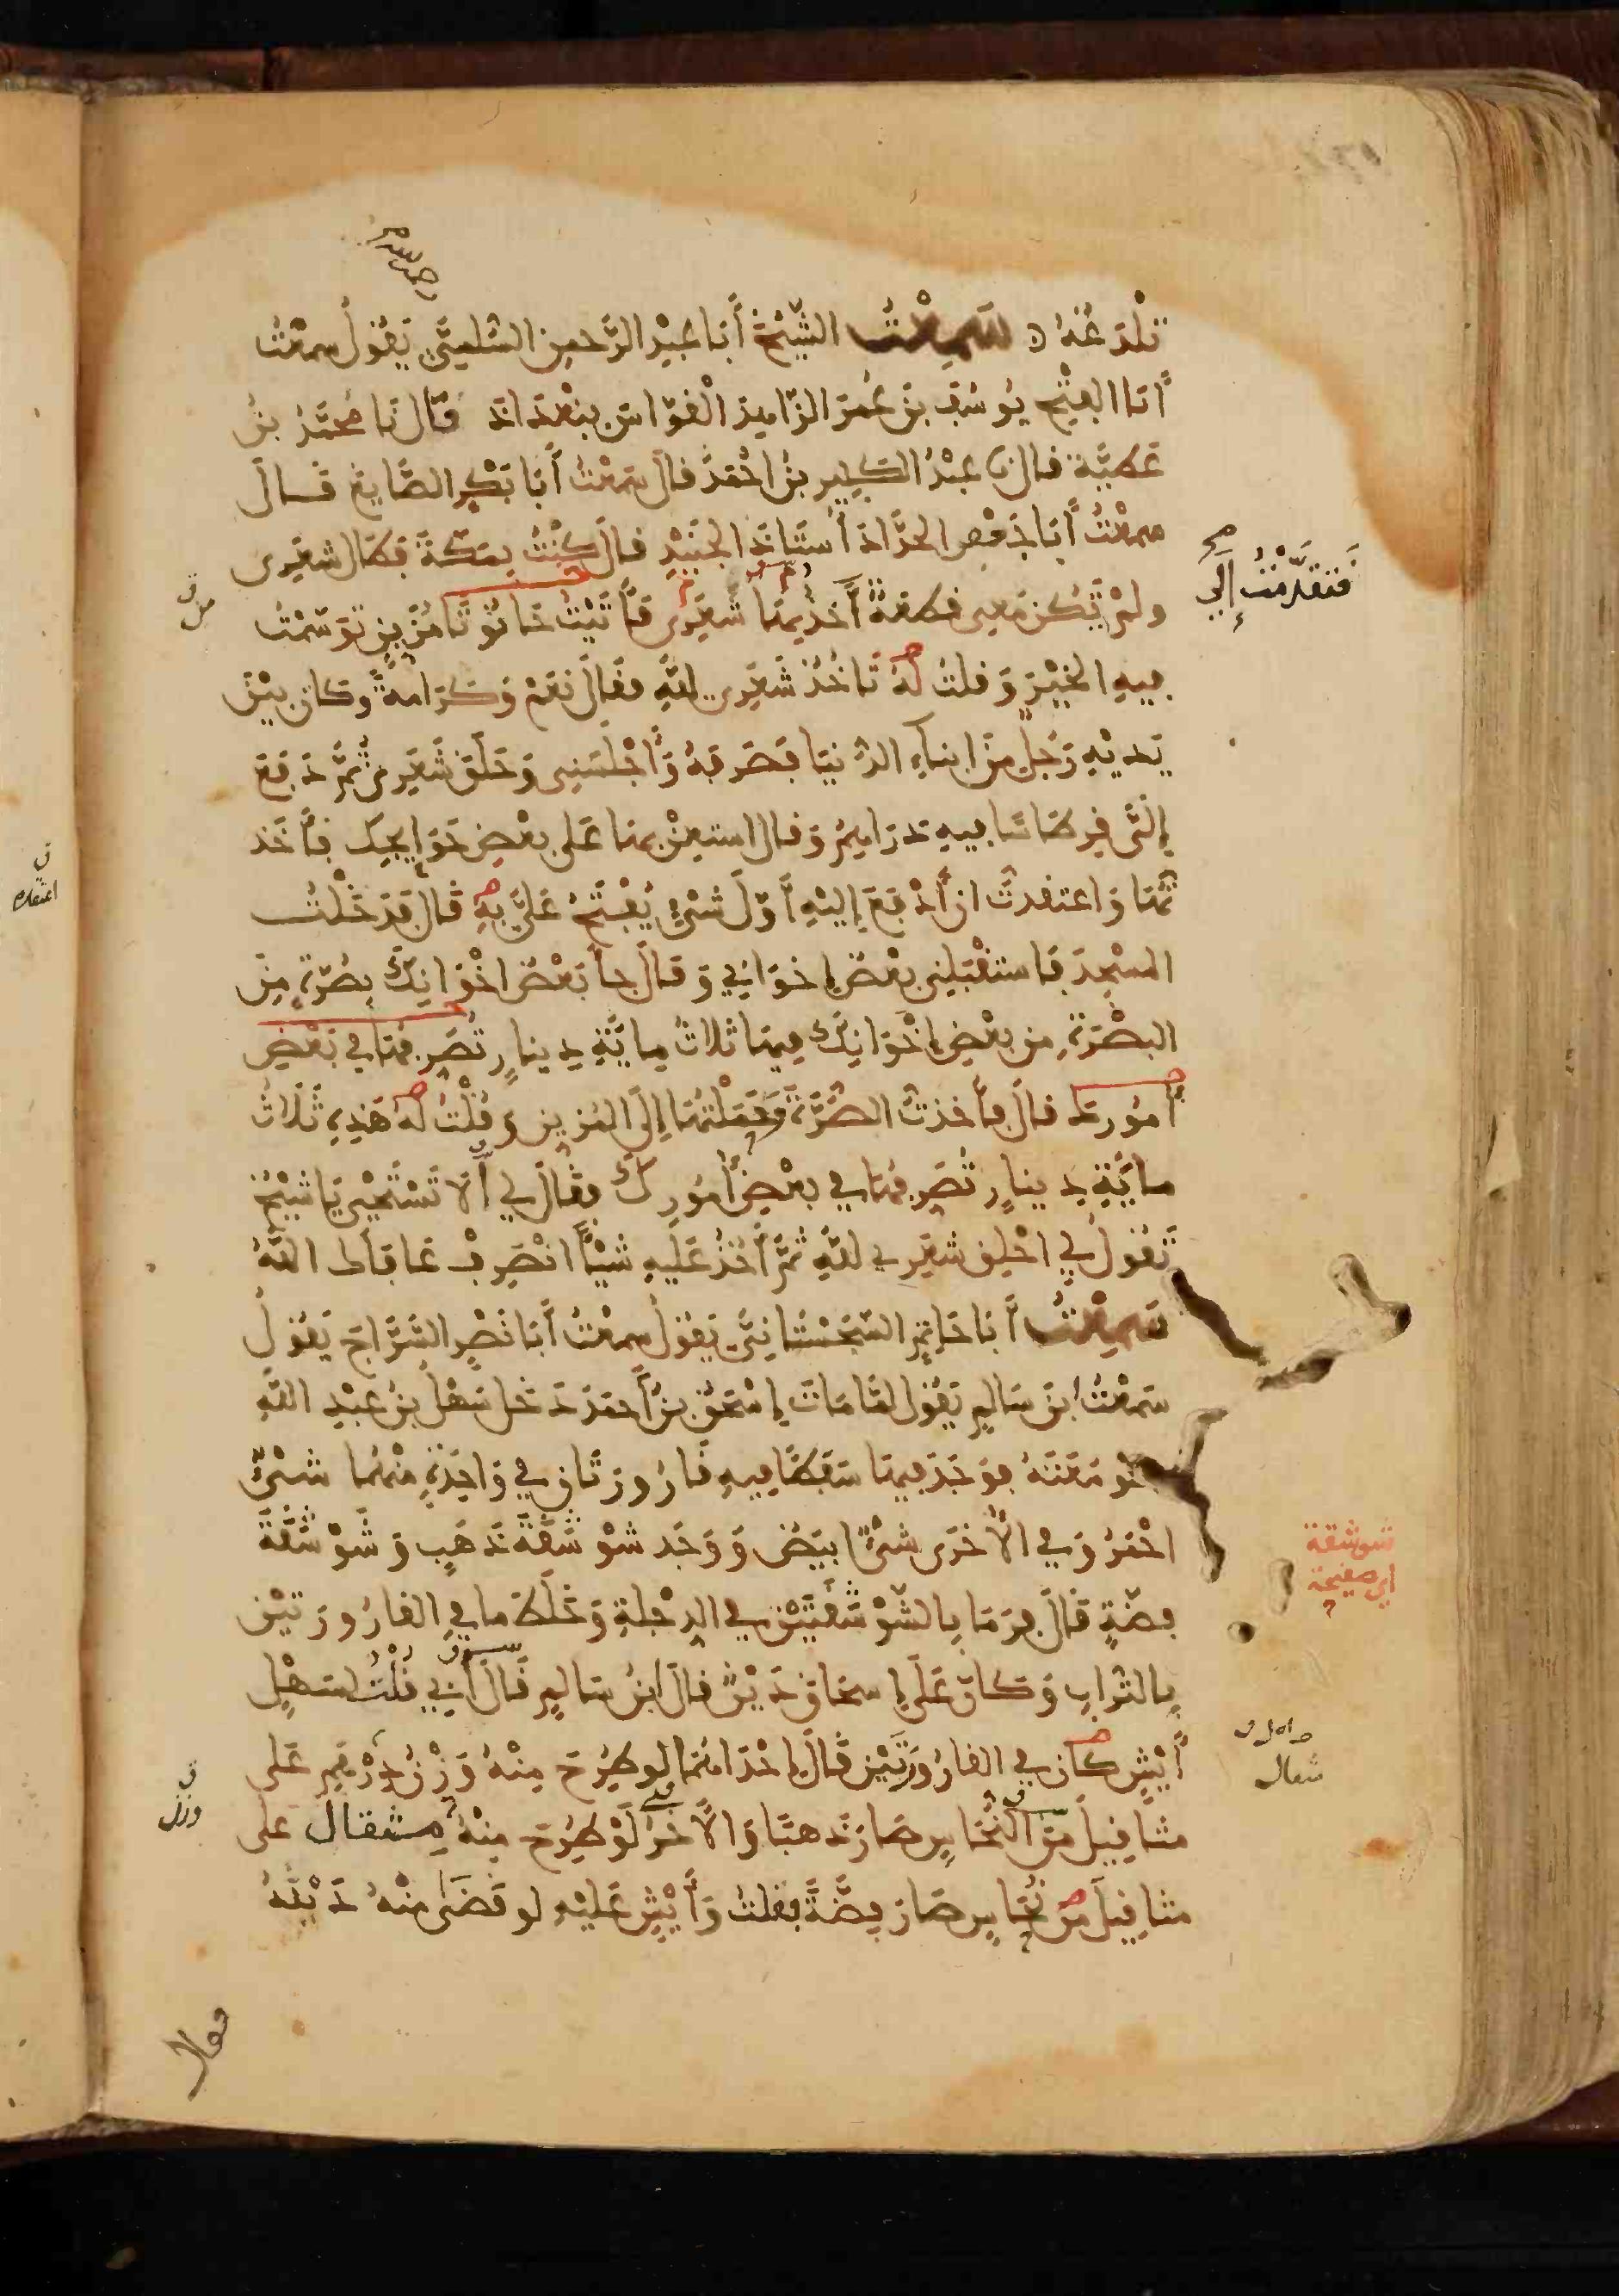 تلدغه سمعت الشيخ أبا عبد الرحمن السلمي يقول سمعت
أبا الفتح يوسف بن عمر الزاهد القواس ببغداد قال نا محمد بن
عطية قال نا عبد الكبير بن احمد قال سمعت أبا بكر الصايغ قال
سمعت أبا جعفر الحداد أستاذ الجنيد قال كنت بمكة فطال شعرى
ولم تكن معى قطعة آخذ بها شعرى فأتيت حانوتا مزين توسمت
فيه الخير وقلت له تاخذ شعرى لله فقال نعم وكرامة وكان بين
يديه رجل من ابناء الدنيا فصرفه وأجلسنى وحلق شعرى ثم دفع
إلى قرطاسا فيه دراهم وقال استعن بها على بعض حوايجك فأخذ
تها واعتقدت ان أدفع إليه أول شىء يفتح على به قال فدخلت
المسجد فاستقبلنى بعض إخوانى وقال جا بعض اخوانك بصرة من
البصرة من بعض إخوانك فيها ثلاث ماية دينار تصرفها في بعض
أمورك قال فأخذت الصرة وحملتها إلى المزين وقلت له هذه ثلاث
ماية دينار تصرفها في بعض أمورك فقال لي ألا تستحيى يا شيخ
تقول لي احلق شعرى لله ثم آخذ عليه شيئا انصرف عافاك الله
سمعت أبا حاتم السجستانى يقول سمعت أبا نصر السراج يقول
سمعت ابن سالم يقول لما مات إسحق بن أحمد دخل سهل بن عبد الله
صومعته فوجد فيها سفطا فيه قارورتان في واحدة منهما شىء
احمر وفي الأخرى شىء ابيض ووجد شوشقة ذهب وشوشقة
فضة قال فرما بالشوشقتين في الدجلة وخلط ما في القارورتين
بالتراب وكان على إسحاق دين قال ابن سالم قال أبي قلت لسهل
أيش كان في القارورتين قال إحداهما لو طرح منه وزن درهم على
مثاقيل من النحاس صار ذهبا والآخر لو طرح منه مثقال على
مثاقيل من نحاس صار فضة فقلت وأيش عليه لو قضى منه دينه
فتقدمت إلى
صح
ن
اعتقده
شوشقة
اي صفيحة
مثقال
ن
وزن
فقال